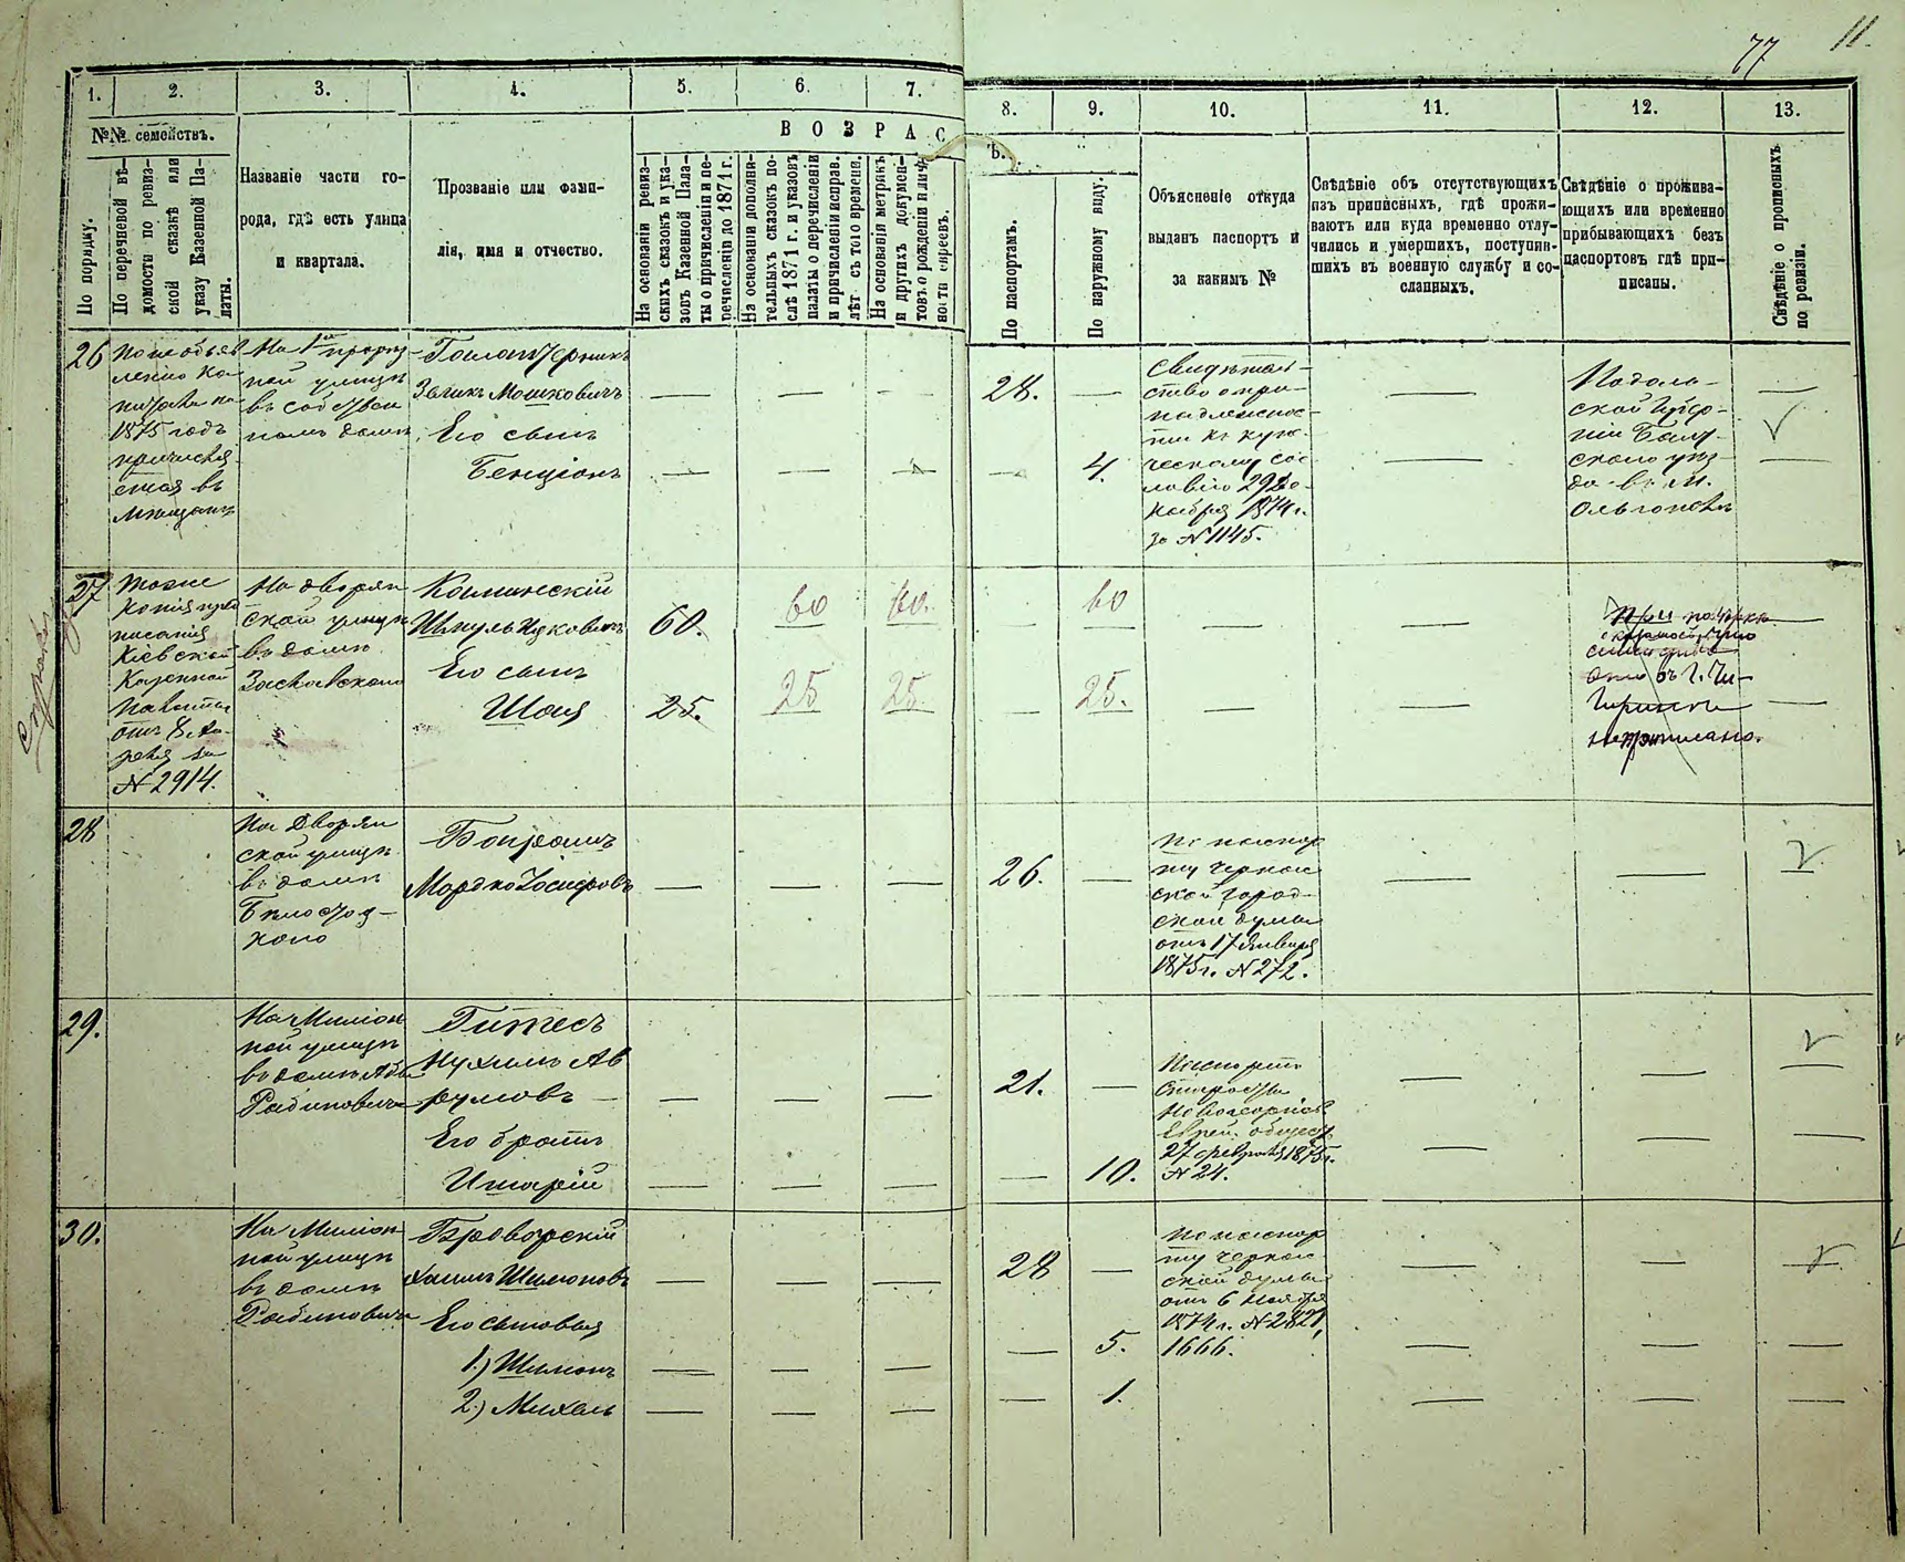 77
11.
1.
2.
3.
4.
5.
6.
7.
8.
9.
10.
11.
12.
13.
№№ семействъ.
По порядку.
По перечневой вѣ-
домости по ревиз-
ской сказкѣ или
указу Казенной Па-
латы.
Названіе части го-
рода, гдѣ есть улица
и квартала.
Прозваніе или фами-
лія, имя и отчество.
ВОЗРАС
Ъ.
На основаніи ревиз-
скихъ сказокъ и ука-
зовъ Казенной Пала-
ты о причисленіи и пе-
речисленіи до 1871 г.
На основаніи дополни-
тельныхъ сказокъ по-
слѣ 1871 г. и указовъ
палаты о перечисленіи
и причисленіи исправ.
лѣт съ того времени.
На основаніи метрикъ
и другихъ докумен-
товъ о рожденіи и лич-
ности евреевъ.
По паспортамъ.
По наружному виду.
Объясненіе откуда
выданъ паспортъ и
за какимъ №
Свѣдѣніе объ отсутствующихъ
изъ приписныхъ, гдѣ прожи-
ваютъ или куда временно отлу-
чились и умершихъ, поступив-
шихъ въ военную службу и со-
сланныхъ.
Свѣдѣніе о прожива-
ющихъ или временно
прибывающихъ безъ
паспортовъ гдѣ при-
писаны.
Свѣдѣніе о прописныхъ
по ревизіи.
26
1875 годъ
въ
На 1й
ной улицѣ
въ собствен
номъ домѣ
Мошковичъ
Его сынъ
Бенціонъ
28.
4.
Свидѣтель-
ство о при-
надлежнос-
ти къ купе-
ческому сос
ловію 29 Де-
кабря 1874 г.
за № 1145.
Подоль-
ской Губер-
ніи Балт-
скаго уѣз-
да въ М.
27
тоже
Копія пред
писанія
Кіевской
Казенной
Палаты
отъ 8
за
№ 2914.
На дворян
ской улицѣ
въ домѣ
Заславскаго
Каминскій
Шмуль Ицковичъ
Его сынъ
Шая
60.
60
60.
60
25.
25
25.
25.
При
28
На Дворян
ской улицѣ
въ домѣ
Мордко Іосифовъ
26.
По паспор
ту Черкас
ской город-
ской думы
отъ 17 Января
1875 г. № 272.
29.
На Миліон
ной улицѣ
въ домѣ Абы
Рабиновича
Нухимъ Ав
румовъ
Его братъ
21.
10.
Паспортъ
Старосты
Еврей. общест.
27 февраля 1875 г.
№ 24.
30.
На Миліон
ной улицѣ
въ домѣ
Рабиновича
Хаимъ Шимоновъ
Его сыновья
1.) Шимонъ
2.) Михель
28
5.
1.
По паспор
ту Черкас
ской думы
отъ 6 Ноября
1874 г. № 2821,
1666.